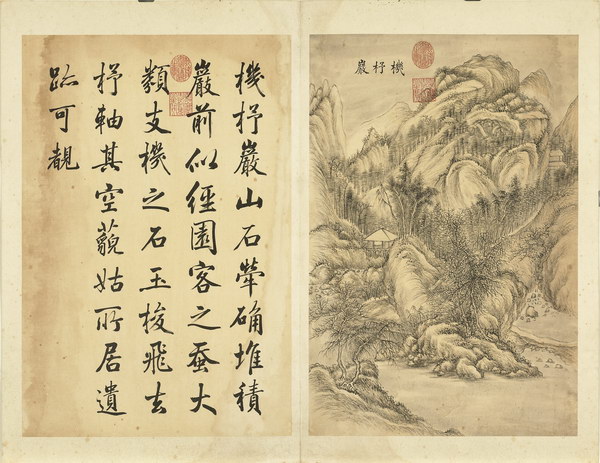 機杼巖
機杼巖山石犖确堆積
巖前似經園客之蚕大
類支機之石玉梭飛去
杼軸其空藐姑所居遺
跡可覩